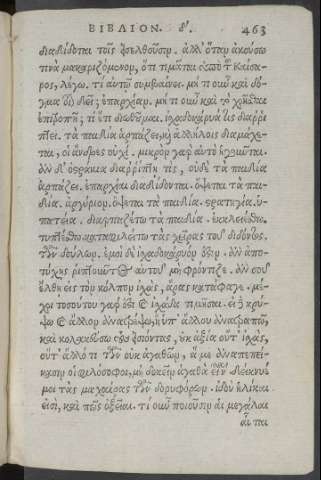 ΒΙΒΛΙΟΝ. δ'. 463
διαδίδοται τοῖς εἰσελθοῦσιν. ἀλλ' ὅταν ἀκούσω
τινὰ μακαριζόμενον, ὅτι τιμᾶται ὑπὸ τοῦ Καίσα-
ρος, λέγω. τί αὐτῷ συμβαίνει. μή τι οὖν καὶ δό-
γμα οἷ δεῖ; ἐπαρχίαν. μή τι οὖν καὶ τὸ χρῆσθαι
ἐπιτροπῇ; τί ἔτι διωθοῦμαι. ἰσχαδοκάρυά τις διαρρι-
πτεῖ. τὰ παιδία ἁρπάζει, καὶ ἀλλήλοις διαμάχε-
ται, οἱ ἄνδρες οὐχί. μικρὸν γὰρ αὐτὸ ἡγοῦνται.
ἂν δ' ὀστράκια διαρρίπτῃ τις, οὐδὲ τὰ παιδία
ἁρπάζει. ἐπαρχίαι διαδίδονται. ὄψεται τὰ παι-
δία. ἀργύριον. ὄψεται τὰ παιδία. στρατηγία. ὑ-
πατεία. διαρπαζέτω τὰ παιδία. ἐκκλειέσθω.
τυπτέσθω καταφιλείτω τὰς χεῖρας τοῦ διδόντος.
τῶν δούλων. ἐμοὶ δὲ ἰσχαδοκάρυον ἐστιν. ἂν ἀπο-
τύχῃς ῥιπτοῦντος αὐτοῦ μὴ φρόντιζε. ἂν σοῦ
ἔλθῃ εἰς τὸν κόλπον ἰσχὰς, ἄρας κατάφαγε. μέ-
χρι τοσούτου γὰρ ἔστι καὶ ἰσχάδα τιμῆσαι. εἰ δὲ κρύ-
ψω καὶ ἄλλον ἀνατρέψω, ἢ ὑπ' ἄλλου ἀνατραπῶ,
καὶ κολακεύσω τοὺς εἰσιόντας, οὐκ ἀξία οὔτ' ἰσχὰς,
οὔτ' ἄλλό τι τῶν οὐκ ἀγαθῶν, ἅ με ἀναπεπεί-
κασιν οἱ φιλόσοφοι, μὴ δοκεῖν ἀγαθὰ εἶναι δείκνυέ
μοι τὰς μαχαίρας τῶν δορυφόρων. ἰδοὺ ἡλίκαι
εἰσὶ, καὶ πῶς ὀξεῖαι. τί οὖν ποιοῦσιν αἱ μεγάλαι
αὗται